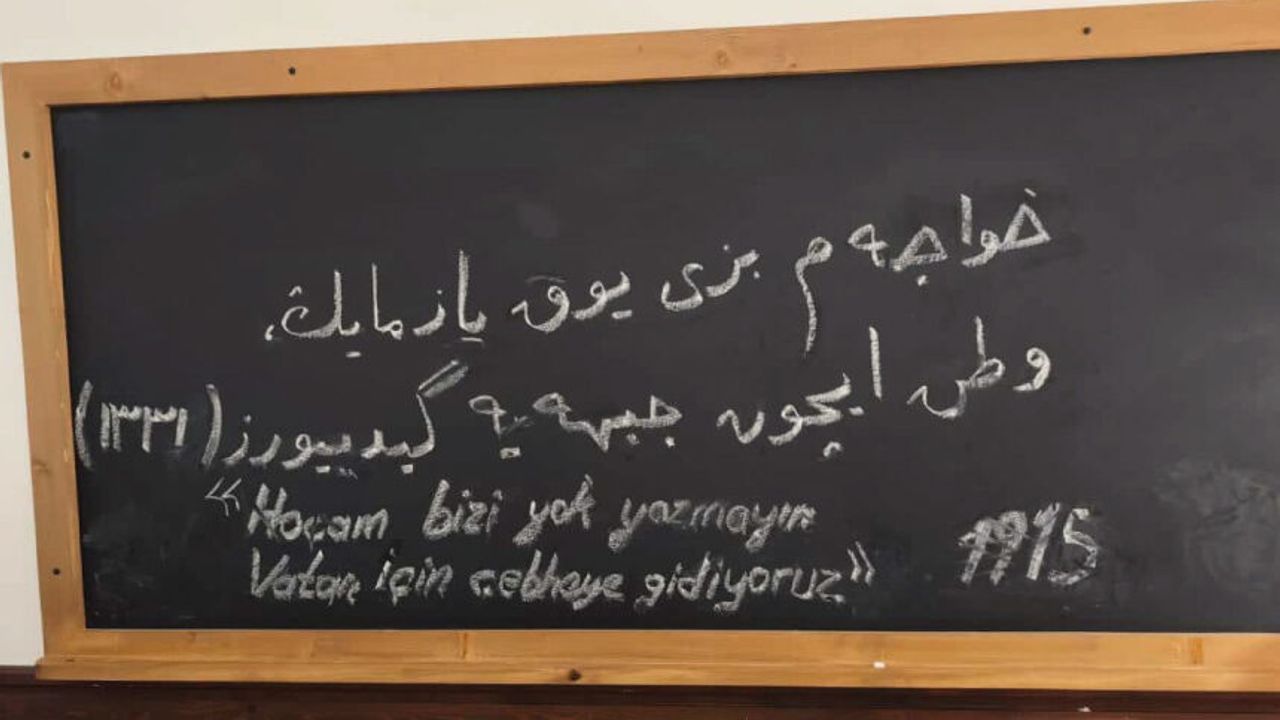 خواجه م بزی یوق یازمایڭ،
وطن ایچون جبهه یه گیدییورز (١٣٣١)
«Hocam bizi yok yazmayın
Vatan için cebheye gidiyoruz» 1915